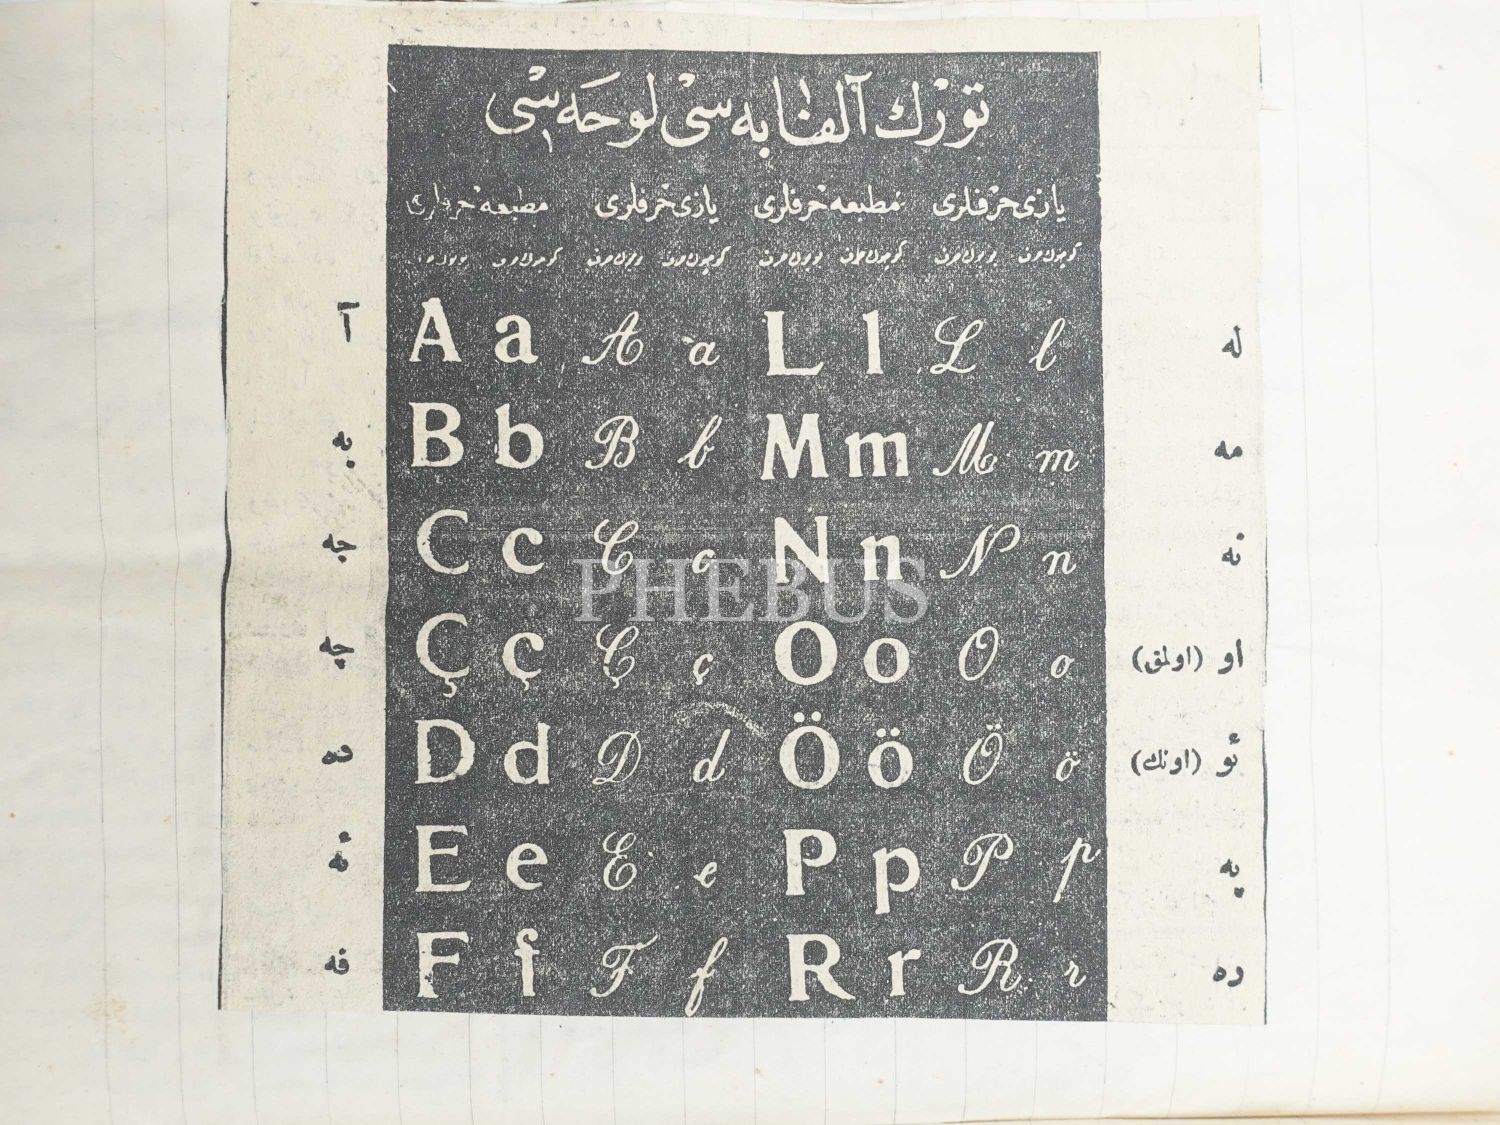 تورك آلفابه سی لوحه سی
یازی حرفلری مطبعه حرفلری یازی حرفلری مطبعه حرفلری
آ A a A a L l L l له
به B b B b M m M m مه
جه C c C c N n N n نه
چه Ç ç Ç ç O o O o او (اولمق)
ده D d D d Ö ö Ö ö ئو (اونك)
ئه E e E e P p P p په
فه F f F f R r R r ره
PHEBUS